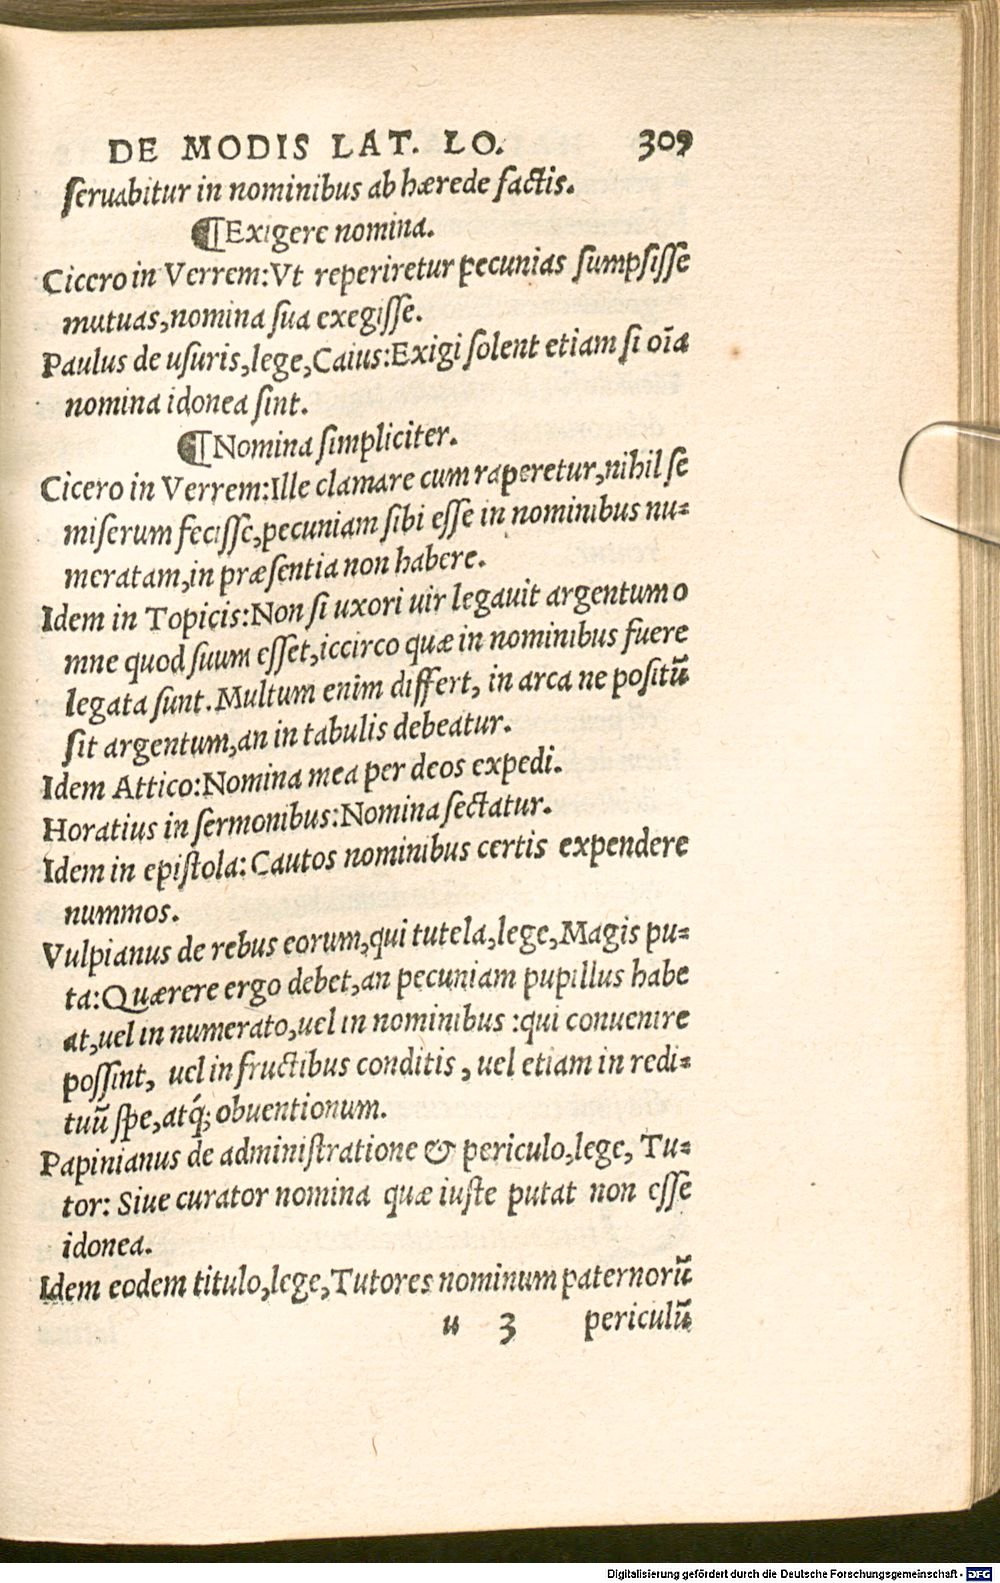 DE MODIS LAT. LO. 309
seruabitur in nominibus ab hærede factis.
¶Exigere nomina.
Cicero in Verrem:Vt reperiretur pecunias sumpsisse
mutuas,nomina sua exegisse.
Paulus de usuris,lege,Caius:Exigi solent etiam si oīa
nomina idonea sint.
¶Nomina simpliciter.
Cicero in Verrem:Ille clamare cum raperetur,nihil se
miserum fecisse,pecuniam sibi esse in nominibus nu=
meratam,in præsentia non habere.
Idem in Topicis:Non si uxori uir legauit argentum o
mne quod suum esset,iccirco quæ in nominibus fuere
legata sunt.Multum enim differt, in arca ne positū
sit argentum,an in tabulis debeatur.
Idem Attico:Nomina mea per deos expedi.
Horatius in sermonibus:Nomina sectatur.
Idem in epistola:Cautos nominibus certis expendere
nummos.
Vulpianus de rebus eorum,qui tutela,lege,Magis pu=
ta:Quærere ergo debet,an pecuniam pupillus habe
at,uel in numerato,uel in nominibus :qui conuenire
possint, uel in fructibus conditis , uel etiam in redi=
tuū spe,atq́; obuentionum.
Papinianus de administratione & periculo,lege, Tu=
tor: Siue curator nomina quæ iuste putat non esse
idonea.
Idem eodem titulo,lege,Tutores nominum paternorū
u 3 periculū
Digitalisierung gefördert durch die Deutsche Forschungsgemeinschaft - DFG